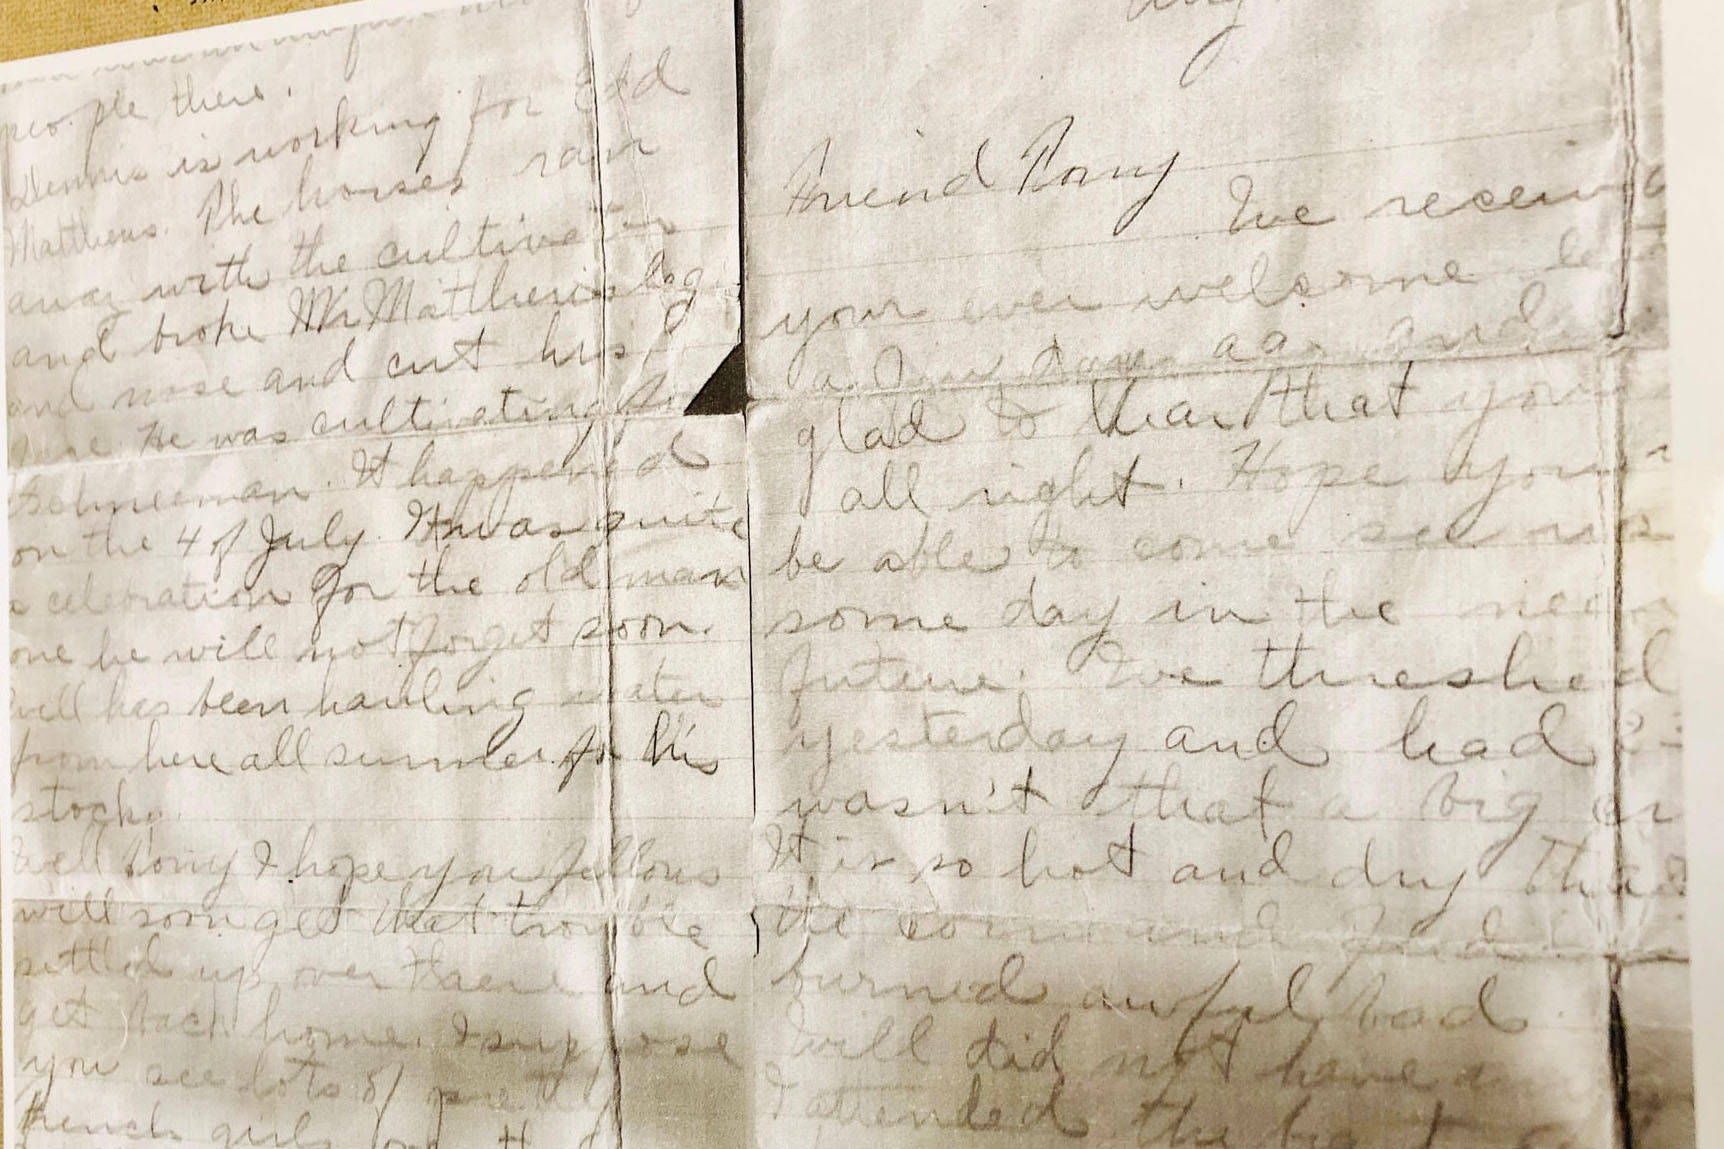 Aug
Friend Tony
We receiv
your ever welcome le
a few days ago and
glad to hear that you
all right. Hope you
be able to come see us
some day in the near
future. We threshed
yesterday and had
wasn't that a big
It is so hot and dry that
the corn and
burned awful bad
Will did not have
I attended the big
people there.
Dennis is working for Ed
Matthews. The horses ran
away with the cultivator
and broke Mr Matthews leg
and nose and cut his
He was cultivating for
Schneeman. It happened
on the 4 of July. It was quite
a celebration for the old man
one he will not forget soon.
Will has been hauling water
from here all summer for his
stock.
Well Tony I hope you fellows
will soon get that trouble
settled up over there and
get back home. I suppose
you see lots of pretty
french girls